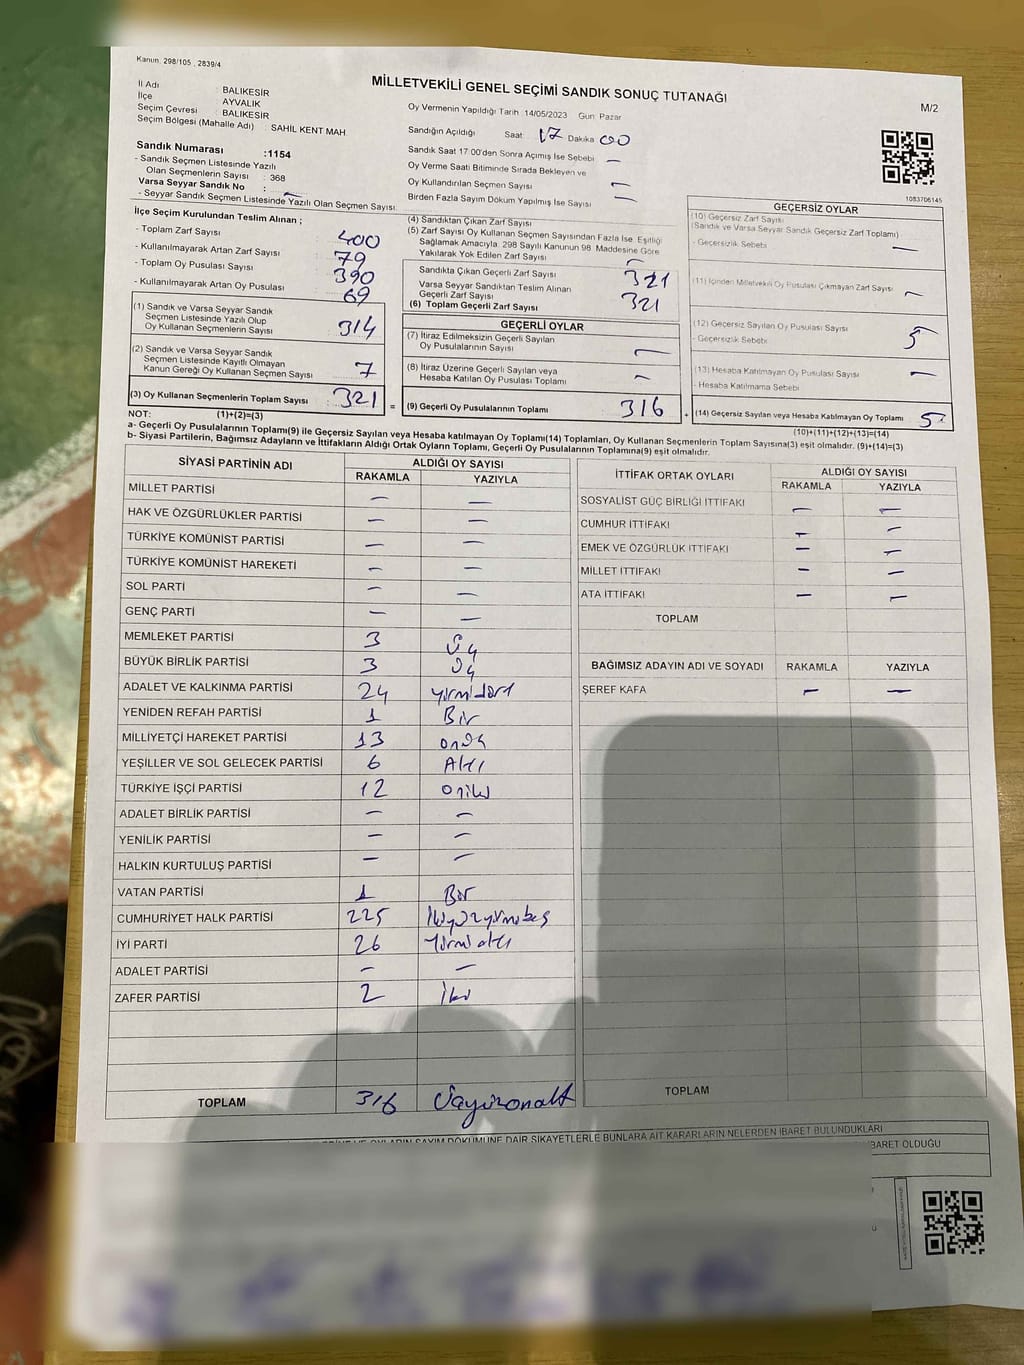 Kanun. 298/105 , 2839/4
MİLLETVEKİLİ GENEL SEÇİMİ SANDIK SONUÇ TUTANAĞI
M/2
İl Adı : BALIKESİR
İlçe : AYVALIK
Seçim Çevresi : BALIKESİR
Seçim Bölgesi (Mahalle Adı) : SAHİL KENT MAH.
Oy Vermenin Yapıldığı Tarih 14/05/2023 Gün Pazar
Sandığın Açıldığı Saat : 17 Dakika 00
Sandık Saat 17:00'den Sonra Açımış İse Sebebi —
Oy Verme Saati Bitiminde Sırada Bekleyen ve
Oy Kullandırılan Seçmen Sayısı —
Birden Fazla Sayım Döküm Yapılmış İse Sayısı —
Sandık Numarası :1154
- Sandık Seçmen Listesinde Yazılı
Olan Seçmenlerin Sayısı : 368
Varsa Seyyar Sandık No : —
- Seyyar Sandık Seçmen Listesinde Yazılı Olan Seçmen Sayısı:
1083706145
İlçe Seçim Kurulundan Teslim Alınan ;
- Toplam Zarf Sayısı 400
- Kullanılmayarak Artan Zarf Sayısı 79
- Toplam Oy Pusulası Sayısı 390
- Kullanılmayarak Artan Oy Pusulası 69
(1) Sandık ve Varsa Seyyar Sandık
Seçmen Listesinde Yazılı Olup
Oy Kullanan Seçmenlerin Sayısı 314
(2) Sandık ve Varsa Seyyar Sandık
Seçmen Listesinde Kayıtlı Olmayan
Kanun Gereği Oy Kullanan Seçmen Sayısı 7
(3) Oy Kullanan Seçmenlerin Toplam Sayısı 321 =
(4) Sandıktan Çıkan Zarf Sayısı
(5) Zarf Sayısı Oy Kullanan Seçmen Sayısından Fazla İse, Eşitliği
Sağlamak Amacıyla, 298 Sayılı Kanunun 98. Maddesine Göre
Yakılarak Yok Edilen Zarf Sayısı —
Sandıkta Çıkan Geçerli Zarf Sayısı 321
Varsa Seyyar Sandıktan Teslim Alınan
Geçerli Zarf Sayısı
(6) Toplam Geçerli Zarf Sayısı 321
GEÇERLİ OYLAR
(7) İtiraz Edilmeksizin Geçerli Sayılan
Oy Pusulalarının Sayısı —
(8) İtiraz Üzerine Geçerli Sayılan veya
Hesaba Katılan Oy Pusulası Toplamı —
(9) Geçerli Oy Pusulalarının Toplamı 316 +
GEÇERSİZ OYLAR
(10) Geçersiz Zarf Sayısı
(Sandık ve Varsa Seyyar Sandık Geçersiz Zarf Toplamı)
- Geçersizlik Sebebi —
(11) İçinden Milletvekili Oy Pusulası Çıkmayan Zarf Sayısı —
(12) Geçersiz Sayılan Oy Pusulası Sayısı 5
- Geçersizlik Sebebi
(13) Hesaba Katılmayan Oy Pusulası Sayısı —
- Hesaba Katılmama Sebebi
(14) Geçersiz Sayılan veya Hesaba Katılmayan Oy Toplamı 5
NOT: (1)+(2)=(3)
(10)+(11)+(12)+(13)=(14)
a- Geçerli Oy Pusulalarının Toplamı(9) ile Geçersiz Sayılan veya Hesaba katılmayan Oy Toplamı(14) Toplamları, Oy Kullanan Seçmenlerin Toplam Sayısına(3) eşit olmalıdır. (9)+(14)=(3)
b- Siyasi Partilerin, Bağımsız Adayların ve İttifakların Aldığı Ortak Oyların Toplamı, Geçerli Oy Pusulalarının Toplamına(9) eşit olmalıdır.
SİYASİ PARTİNİN ADI ALDIĞI OY SAYISI
RAKAMLA YAZIYLA
MİLLET PARTİSİ — —
HAK VE ÖZGÜRLÜKLER PARTİSİ — —
TÜRKİYE KOMÜNİST PARTİSİ — —
TÜRKİYE KOMÜNİST HAREKETİ — —
SOL PARTİ — —
GENÇ PARTİ — —
MEMLEKET PARTİSİ 3 Üç
BÜYÜK BİRLİK PARTİSİ 3 Üç
ADALET VE KALKINMA PARTİSİ 24 yirmidört
YENİDEN REFAH PARTİSİ 1 Bir
MİLLİYETÇİ HAREKET PARTİSİ 13 onüç
YEŞİLLER VE SOL GELECEK PARTİSİ 6 Altı
TÜRKİYE İŞÇİ PARTİSİ 12 oniki
ADALET BİRLİK PARTİSİ — —
YENİLİK PARTİSİ — —
HALKIN KURTULUŞ PARTİSİ — —
VATAN PARTİSİ 1 Bir
CUMHURİYET HALK PARTİSİ 225 İkiyüzyirmibeş
İYİ PARTİ 26 Yirmialtı
ADALET PARTİSİ — —
ZAFER PARTİSİ 2 İki
TOPLAM 316 Üçyüzonaltı
İTTİFAK ORTAK OYLARI ALDIĞI OY SAYISI
RAKAMLA YAZIYLA
SOSYALİST GÜÇ BİRLİĞİ İTTİFAKI — —
CUMHUR İTTİFAKI — —
EMEK VE ÖZGÜRLÜK İTTİFAKI — —
MİLLET İTTİFAKI — —
ATA İTTİFAKI — —
TOPLAM
BAĞIMSIZ ADAYIN ADI VE SOYADI RAKAMLA YAZIYLA
ŞEREF KAFA — —
TOPLAM
OYLARIN SAYIM DÖKÜMÜNE DAİR ŞİKAYETLERLE BUNLARA AİT KARARLARIN NELERDEN İBARET BULUNDUKLARI
İBARET OLDUĞU